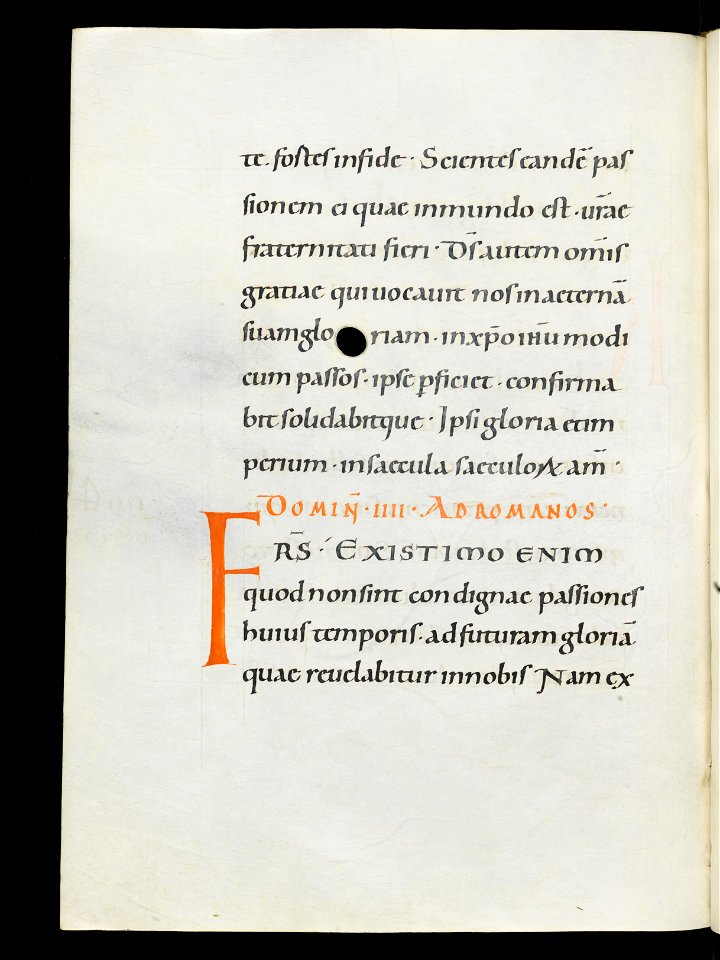 te. fostes infide · Scientes eandē pas
sionem ei quae inmundo est · ur̄ae
fraternitati fieri · D̄s autem om̄is
gratiae qui uocauit nos in aeternā
suam gloriam · in xp̄o ih̄u modi
cum passos · ipse p̱ficiet · confirma
bit solidabitque · Ipsi gloria etim
perium · in saecula saeculoꝝ am̄ ·
Domin̄ · IIII · Ad Romanos ·
FR̄S · Existimo enim
quod non sint condignae passiones
huius temporis · ad futuram gloriā
quae reuelabitur in nobis Nam ex